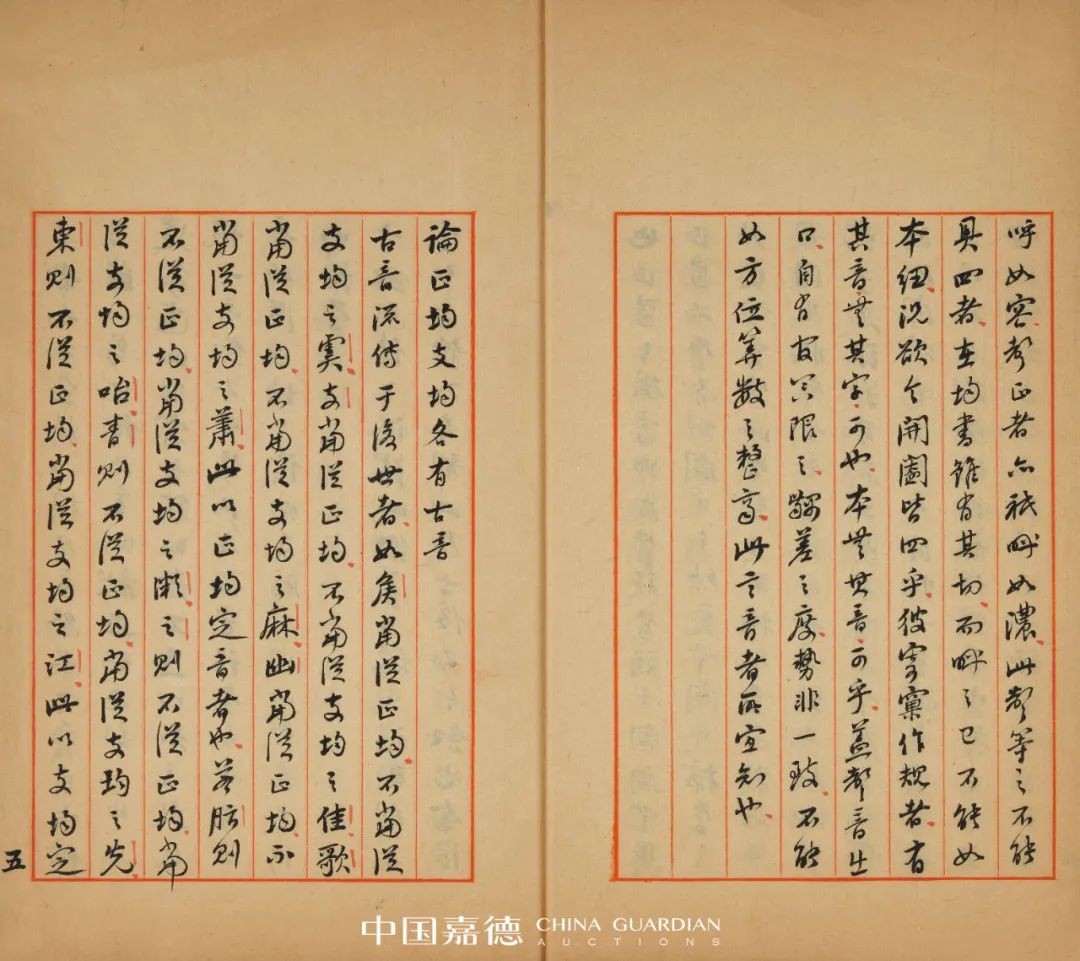 呼如容聲正者亦祇呼如濃此聲等之不能
具四者在均書雖有其切而呼之已不能如
本紐況欲令開闔皆四乎彼穿窠作規者有
其音無其字可也本無其音可乎蓋聲音出
口自有官器限之齟差之度勢非一致不能
如方位算數之整齊此言音者所宜知也
論正均支均各有古音
古音流傳于後世者如矦當從正均不當從
支均之虞支當從正均不當從支均之佳歌
當從正均不當從支均之麻幽當從正均不
當從支均之蕭此以正均定音者也若肴則
不從正均當從支均之之則不從正均當
從支均之咍青則不從正均當從支均之先
東則不從正均當從支均之江此以支均定
五
中国嘉德 CHINA GUARDIAN
AUCTIONS